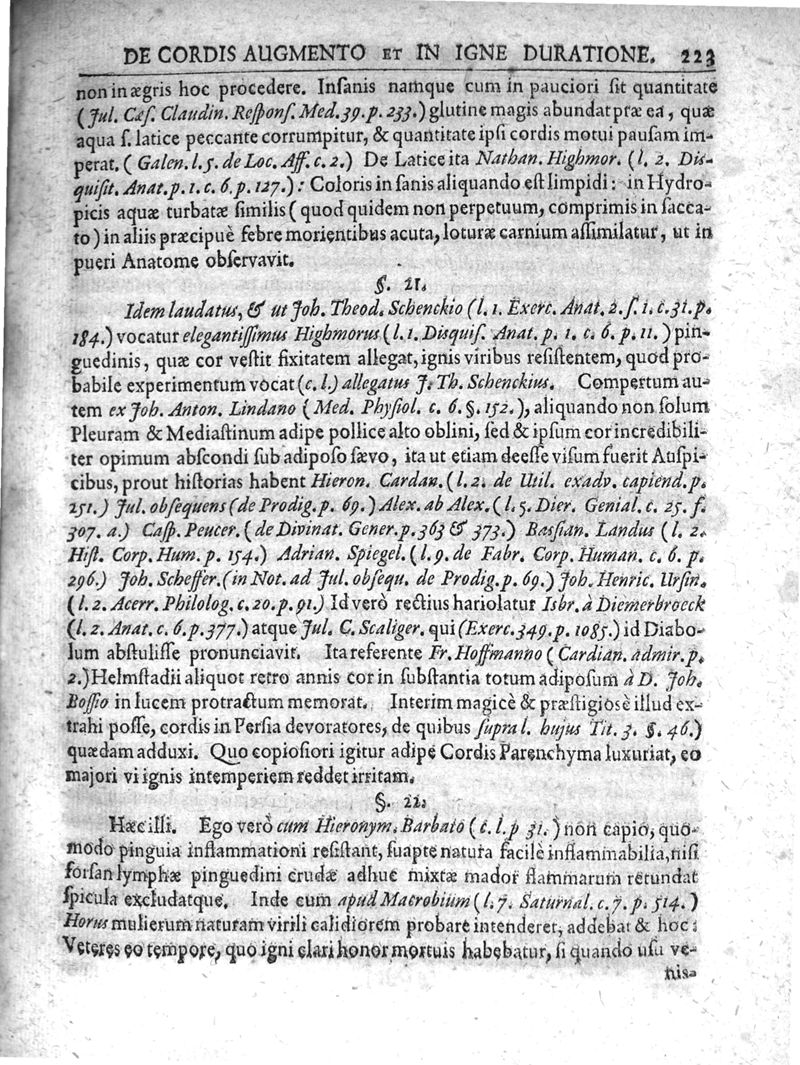 DE CORDIS AUGMENTO ET IN IGNE DURATIONE. 223
non in ægris hoc procedere. Inſanis namque cum in pauciori ſit quantitate
(Jul. Cæſ. Claudin. Reſponſ. Med. 39. p. 233.) glutine magis abundat præ ea, quæ
aqua ſ. latice peccante corrumpitur, & quantitate ipſi cordis motui pauſam im-
perat. (Galen. l. 5. de Loc. Aff. c. 2.) De Latice ita Nathan. Highmor. (l. 2. Diſ-
quiſit. Anat. p. 1. c. 6. p. 127.): Coloris in ſanis aliquando eſt limpidi: in Hydro-
picis aquæ turbatæ ſimilis (quod quidem non perpetuum, comprimis in ſacca-
to) in aliis præcipuè febre morientibus acuta, loturæ carnium aſſimilatur, ut in
pueri Anatome obſervavit.
§. 21.
Idem laudatus, & ut Joh. Theod. Schenckio (l. 1. Exerc. Anat. 2. ſ. 1. c. 31. p.
184.) vocatur elegantiſſimus Highmorus (l. 1. Disquiſ. Anat. p. 1. c. 6. p. 11.) pin-
guedinis, quæ cor veſtit fixitatem allegat, ignis viribus reſiſtentem, quod pro-
babile experimentum vocat (c. l.) allegatus J. Th. Schenckius. Compertum au-
tem ex Joh. Anton. Lindano (Med. Phyſiol. c. 6. §. 152.), aliquando non ſolum
Pleuram & Mediaſtinum adipe pollice alto oblini, ſed & ipſum cor incredibili-
ter opimum abſcondi ſub adipoſo ſævo, ita ut etiam deeſſe viſum fuerit Auſpi-
cibus, prout hiſtorias habent Hieron. Cardan. (l. 2. de Util. exadv. capiend. p.
251.) Jul. obſequens (de Prodig. p. 69.) Alex. ab Alex. (l. 5. Dier. Genial. c. 25. f.
307. a.) Caſp. Peucer. (de Divinat. Gener. p. 363 & 373.) Baſſian. Landus (l. 2.
Hiſt. Corp. Hum. p. 154.) Adrian. Spiegel. (l. 9. de Fabr. Corp. Human. c. 6. p.
296.) Joh. Scheffer. (in Not. ad Jul. obſequ. de Prodig. p. 69.) Joh. Henric. Urſin.
(l. 2. Acerr. Philolog. c. 20. p. 91.) Id verò rectius hariolatur Isbr. à Diemerbroeck
(l. 2. Anat. c. 6. p. 377.) atque Jul. C. Scaliger. qui (Exerc. 349. p. 1085.) id Diabo-
lum abſtuliſſe pronunciavit. Ita referente Fr. Hoffmanno (Cardian. admir. p.
2.) Helmſtadii aliquot retro annis cor in ſubſtantia totum adipoſum à D. Joh.
Boſſio in lucem protractum memorat. Interim magicè & præſtigiosè illud ex-
trahi poſſe, cordis in Perſia devoratores, de quibus ſupra l. hujus Tit. 3. §. 46.)
quædam adduxi. Quo copioſiori igitur adipe Cordis Parenchyma luxuriat, eo
majori vi ignis intemperiem reddet irritam.
§. 22.
Hæc illi. Ego verò cum Hieronym. Barbato (c. l. p 31.) non capio, quo-
modo pinguia inflammationi reſiſtant, ſuapte natura facilè inflammabilia, niſi
forſan lymphæ pinguedini crudæ adhuc mixtæ mador flammarum retundat
ſpicula excludatque. Inde cum apud Macrobium (l. 7. Saturnal. c. 7. p. 514.)
Horus mulierum naturam virili calidiorem probare intenderet, addebat & hoc:
Veteres eo tempore, quo igni clari honor mortuis habebatur, ſi quando uſu ve-
nis-